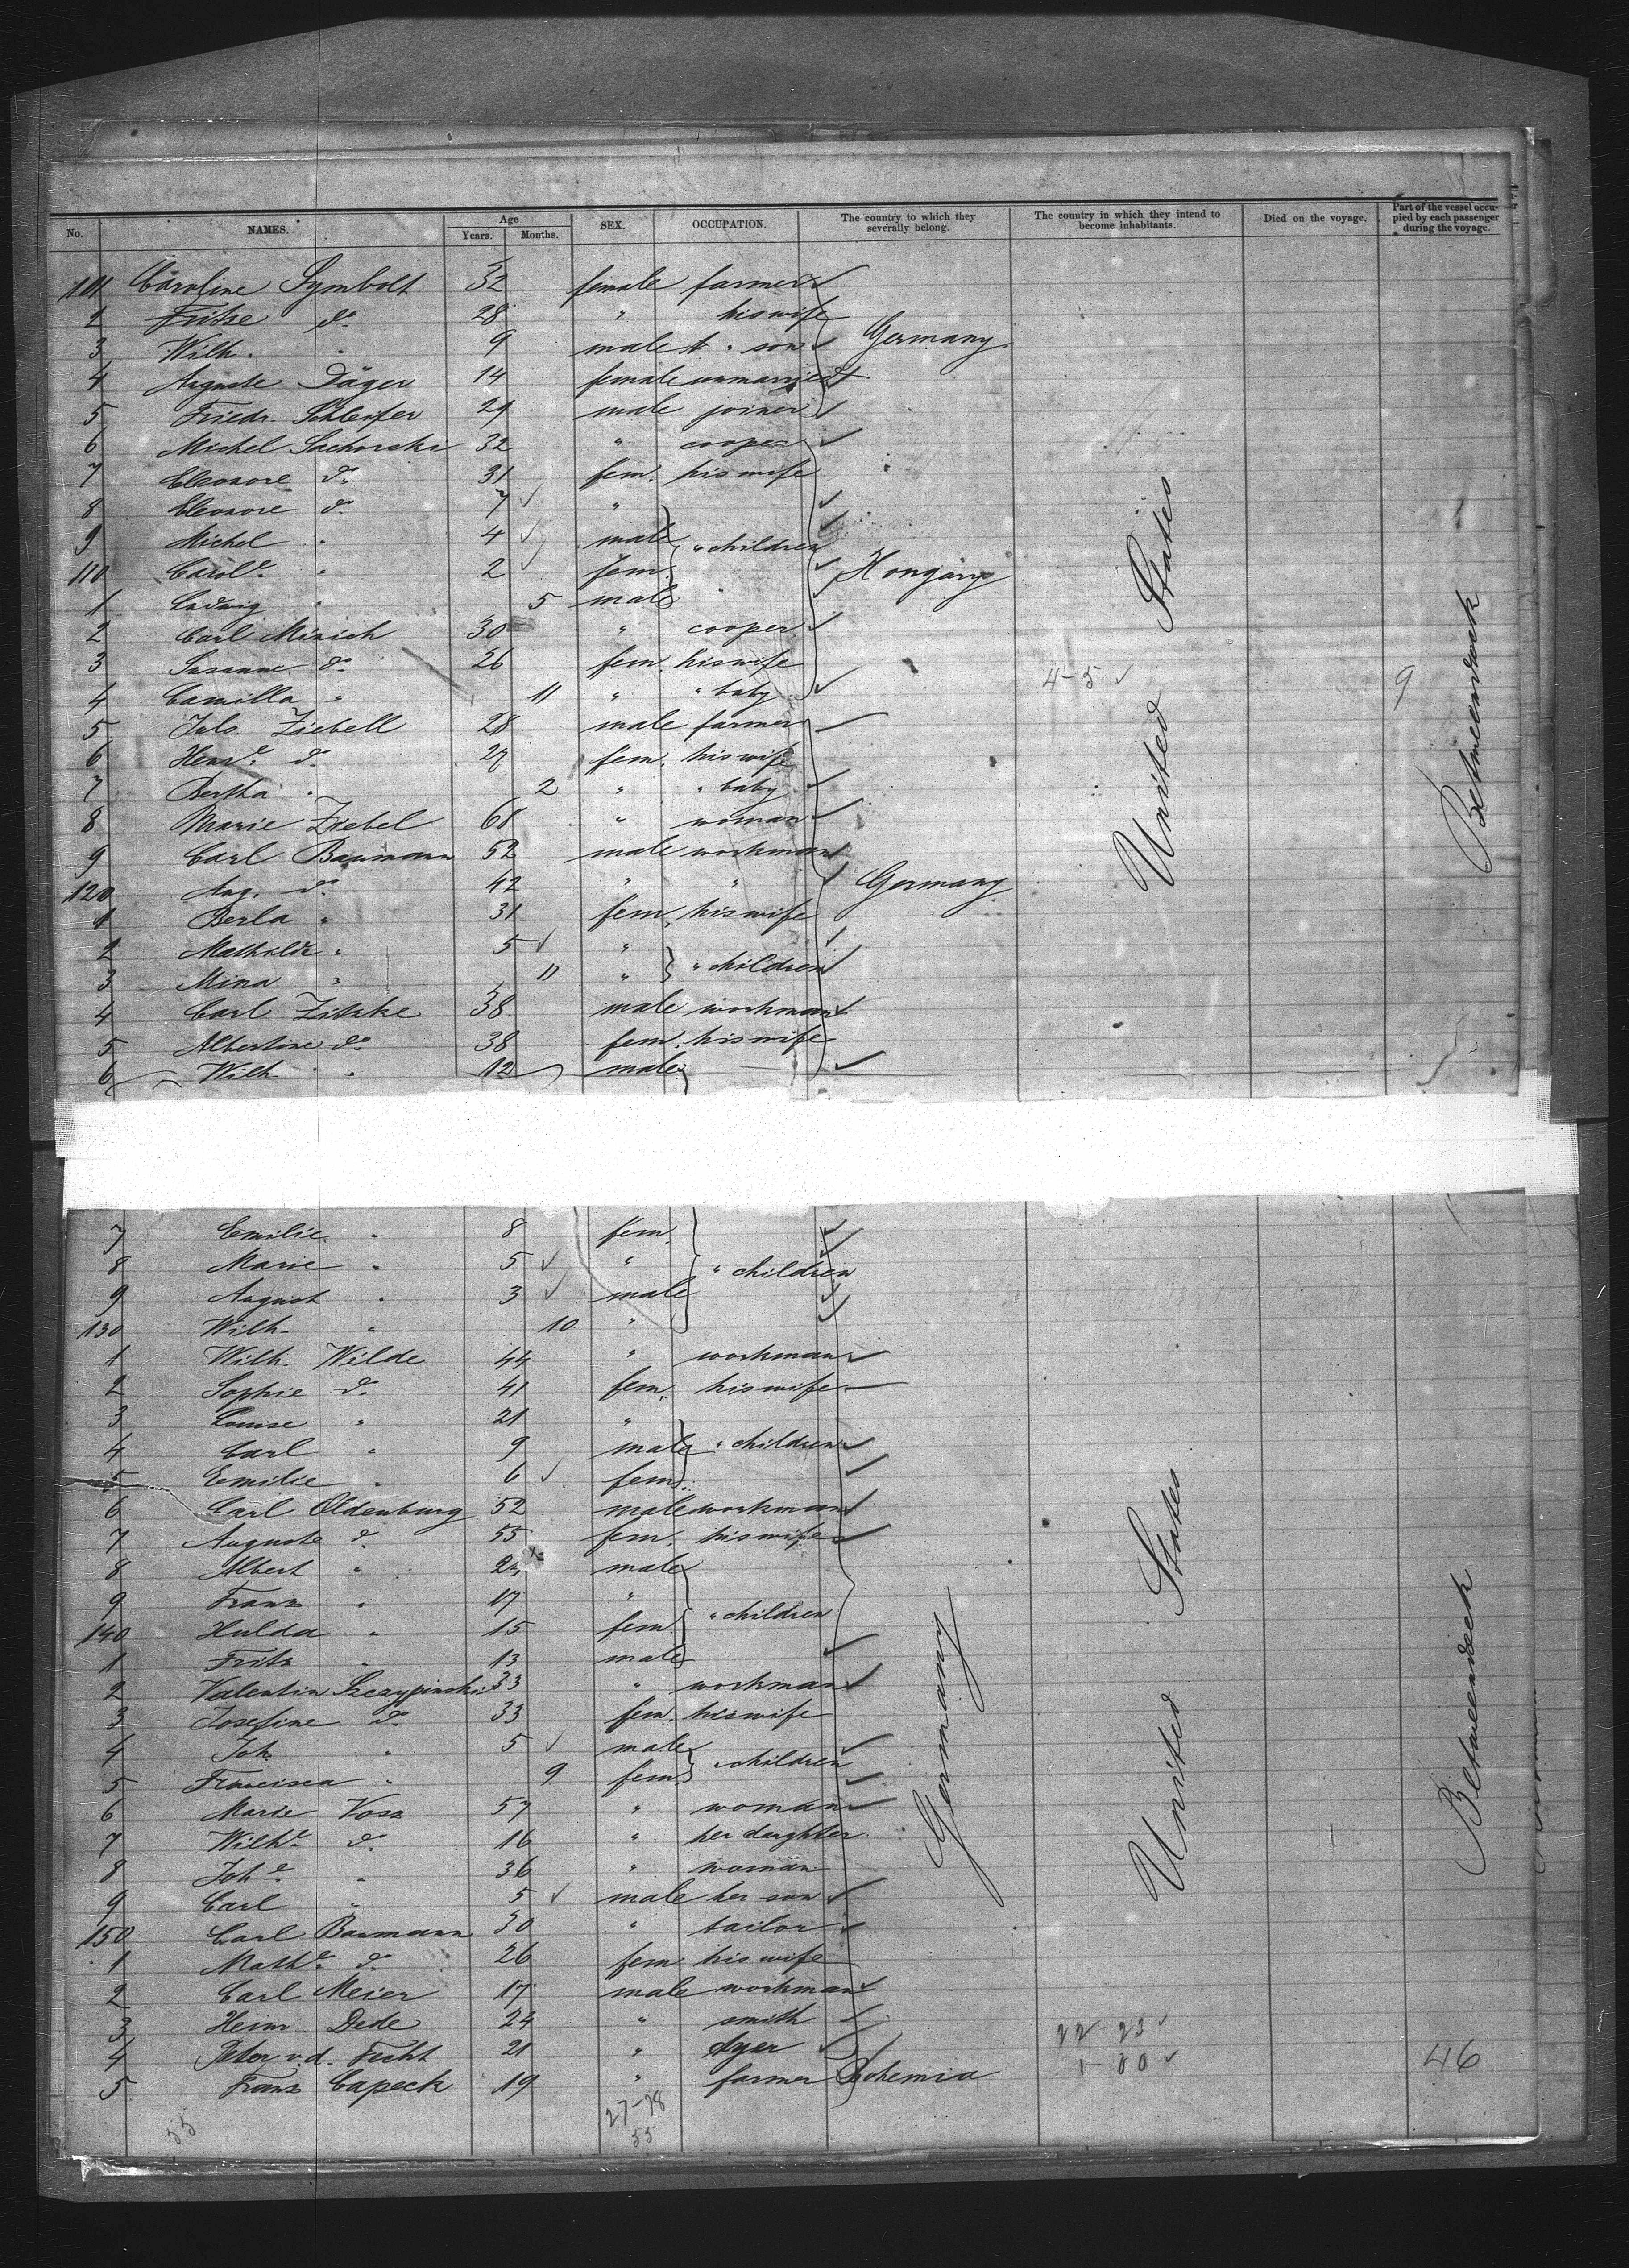 No. NAMES. Age Years. Months. SEX. OCCUPATION. The country to which they severally belong. The country in which they intend to become inhabitants. Died on the voyage. Part of the vessel occupied by each passenger during the voyage.
101 Caroline Symbolt 32 female farmer
2 Fritze do. 28 " his wife
3 Wilh. " 9 male " son Germany
4 Auguste Däger 14 female unmarried
5 Friedr. Schleifer 29 male joiner
6 Michel Sachorski 32 " cooper
7 Eleonore do. 31 fem. his wife
8 Eleonore do. 7 "
9 Michel " 4 male " children
110 Carole. " 2 fem. Hongary
1 Ludwig " 5 male
2 Carl Minich 30 " cooper
3 Susanne do. 26 fem. his wife
4 Camilla " 11 " " baby 4-5 9
5 Juls. Ziebell 28 male farmer
6 Henre. do. 27 fem. his wife
7 Bertha " 2 " " baby
8 Marie Ziebel 61 " woman
9 Carl Baumann 52 male workman
120 Aug. do. 42 " " Germany
1 Berla " 31 fem. his wife
2 Mathilde " 5 "
3 Mina " 11 " " children
4 Carl Zitzke 38 male workman
5 Albertine do. 38 fem. his wife
6 Wilh. " 12 male
United States
Betweendeck
7 Emilie " 8 fem.
8 Marie " 5 " " children
9 August " 3 male
130 Wilh. " 10 "
1 Wilh. Wilde 44 " workman
2 Sophie do. 41 fem. his wife
3 Louise " 21 "
4 Carl " 9 male " children
5 Emilie " 6 fem.
6 Carl Oldenburg 52 male workman
7 Auguste do. 55 fem. his wife
8 Albert " 24 male
9 Franz " 17 "
140 Hulda " 15 fem. " children
1 Fritz " 13 male
2 Valentin Szczypinski 33 " workman
3 Josefine do. 33 fem. his wife
4 Joh. " 5 male
5 Francisca " 9 fem. " children
6 Marie Voss 57 " woman
7 Wilhe. do. 16 " her daughter
8 Johe. " 36 " woman
9 Carl " 5 male her son
150 Carl Baumann 30 " tailor
1 Mathe. do. 26 fem. his wife
2 Carl Meier 17 male workman
3 Heinr. Dede 24 " smith 22-23
4 Peter v.d. Fecht 21 " dyer 1-00 46
5 Franz Capeck 19 " farmer Bohemia
Germany
United States
Betweendeck
55 27-28
55